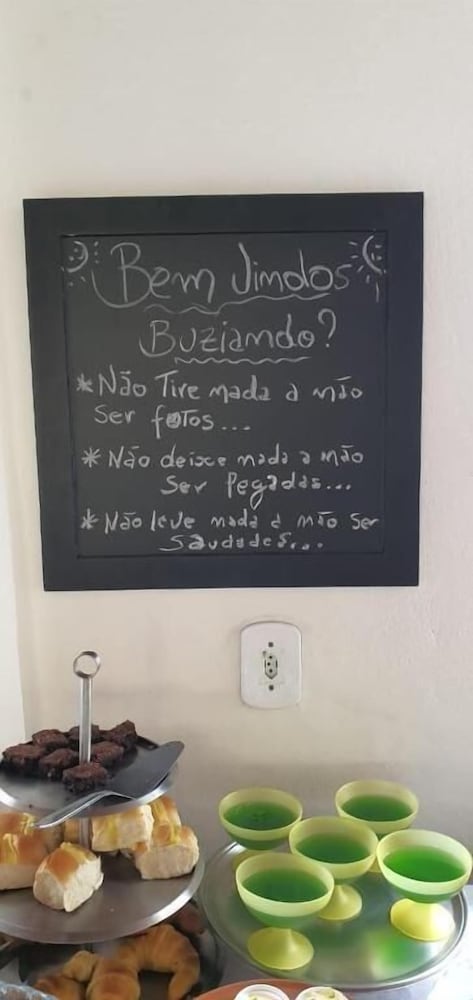 Bem Vimdos
Buziamdo?
*Não Tire mada a mão
Ser fotos...
*Não deixe mada a mão
Ser Pegadas...
*Não leve mada a mão Ser
Saudades...